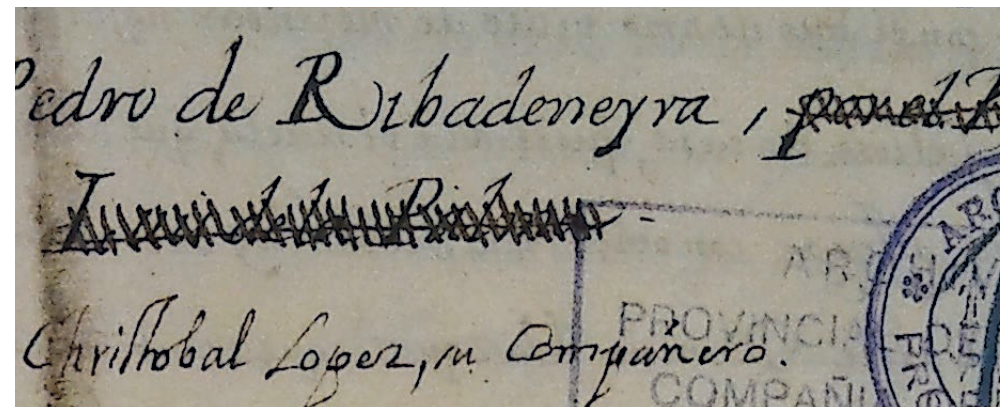 Pedro de Ribadeneyra, por el P.
Christobal Lopez, su Compañero.
PROVINCIA DE
COMPAÑI